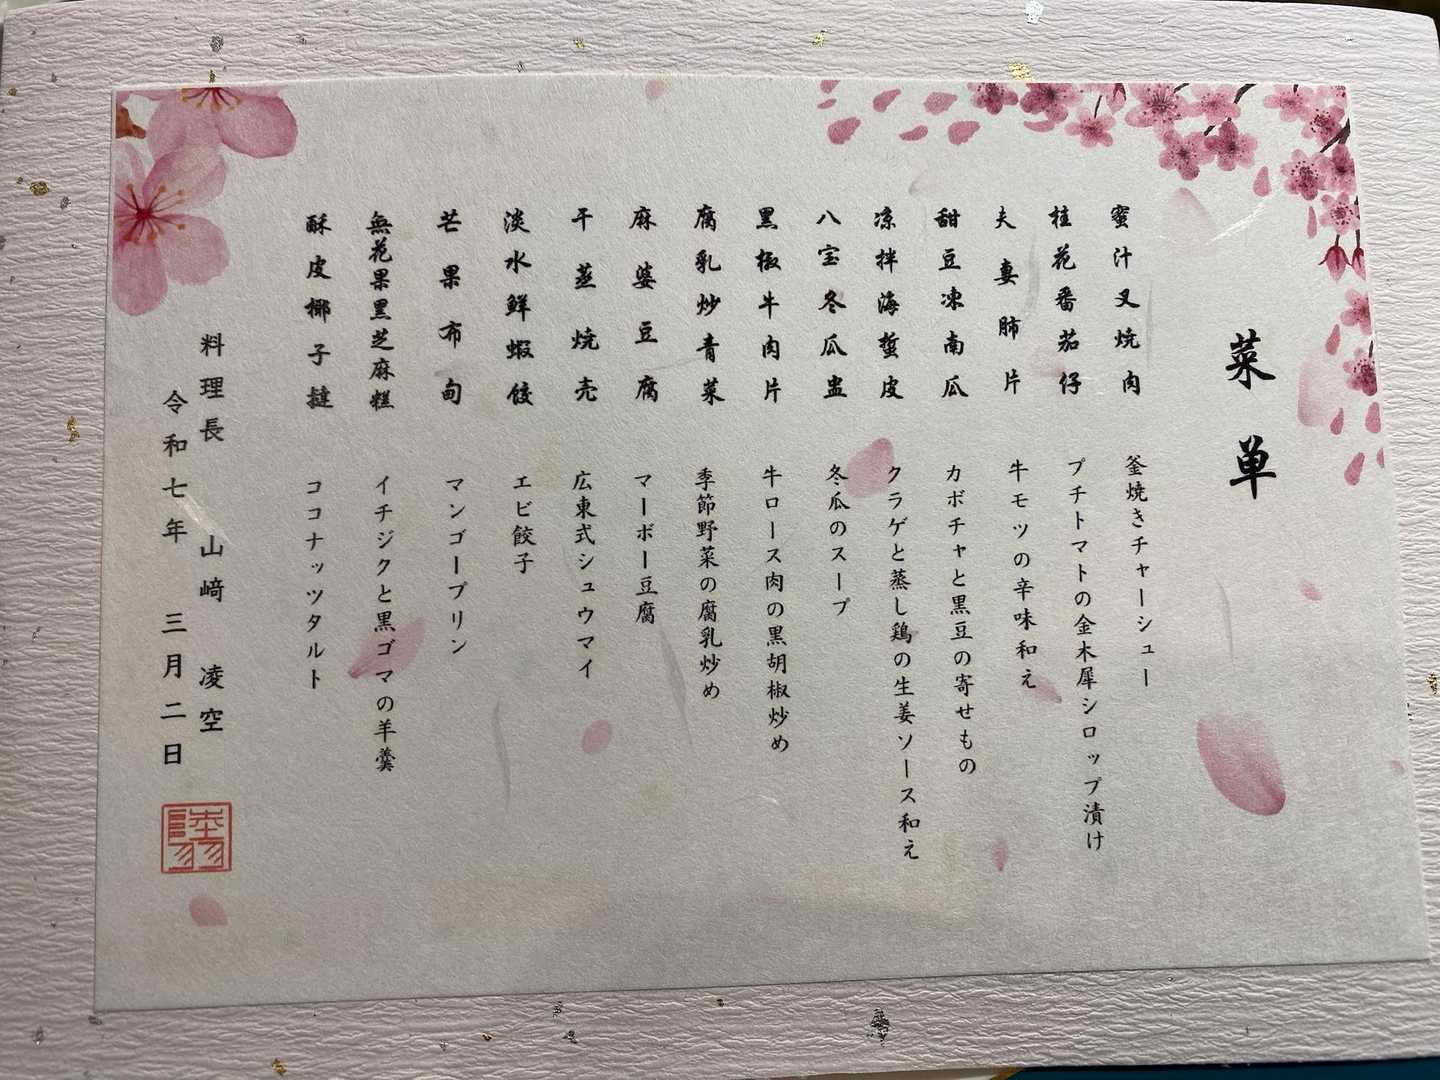 菜単
蜜汁叉焼肉
釜焼きチャーシュー
桂花番茄仔
プチトマトの金木犀シロップ漬け
夫妻肺片
牛モツの辛味和え
甜豆凍南瓜
カボチャと黒豆の寄せもの
凉拌海蜇皮
クラゲと蒸し鶏の生姜ソース和え
八宝冬瓜盅
冬瓜のスープ
黒椒牛肉片
牛ロース肉の黒胡椒炒め
腐乳炒青菜
季節野菜の腐乳炒め
麻婆豆腐
マーボー豆腐
干蒸焼売
広東式シュウマイ
淡水鮮蝦餃
エビ餃子
芒果布甸
マンゴープリン
無花果黒芝麻糕
イチジクと黒ゴマの羊羹
酥皮椰子撻
ココナッツタルト
料理長 山﨑 凌空
令和七年 三月二日